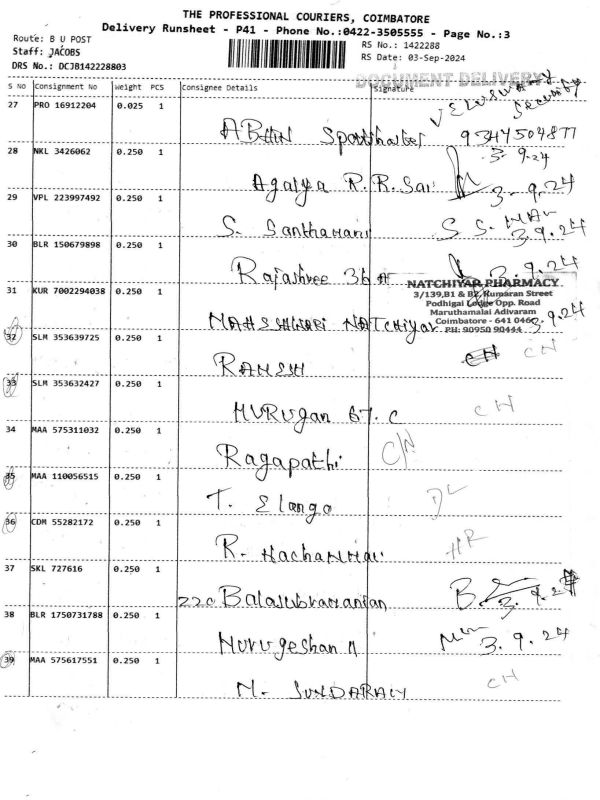 THE PROFESSIONAL COURIERS, COIMBATORE
Delivery Runsheet - P41 - Phone No.:0422-3505555 - Page No.:3
Route: B U POST
RS No.: 1422288
Staff: JACOBS
RS Date: 03-Sep-2024
DRS No.: DCJB142228803
DOCUMENT DELIVERY
S NO Consignment No Weight PCS Consignee Details Signature
27 PRO 16912204 0.025 1
ABHIN 9344504877
3.9.24
28 NKL 3426062 0.250 1
Agalya R.R. Sai 3-9.24
29 VPL 223997492 0.250 1
S. 3.9.24
30 BLR 150679898 0.250 1
Rajashree 36 3.9.24
NATCHIYAR PHARMACY
31 KUR 7002294038 0.250 1
3/139,B1 & B2, Kumaran Street
Podhigai Lodge Opp. Road
Maruthamalai Adivaram
Coimbatore - 641 046
PH: 90950 90444
MAHESHWARI NATCHiyar 3.9.24
32 SLM 353639725 0.250 1
RAMESH CN CN
33 SLM 353632427 0.250 1
MURUgan 67. C CN
34 MAA 575311032 0.250 1
Ragapathi C/N
35 MAA 110056515 0.250 1
T. Elango DL
36 CDM 55282172 0.250 1
R. HR
37 SKL 727616 0.250 1
220 Balasubramanian B 3.9.24
38 BLR 1750731788 0.250 1
Murugeshan 3.9.24
39 MAA 575617551 0.250 1
M. SUNDARAM CN